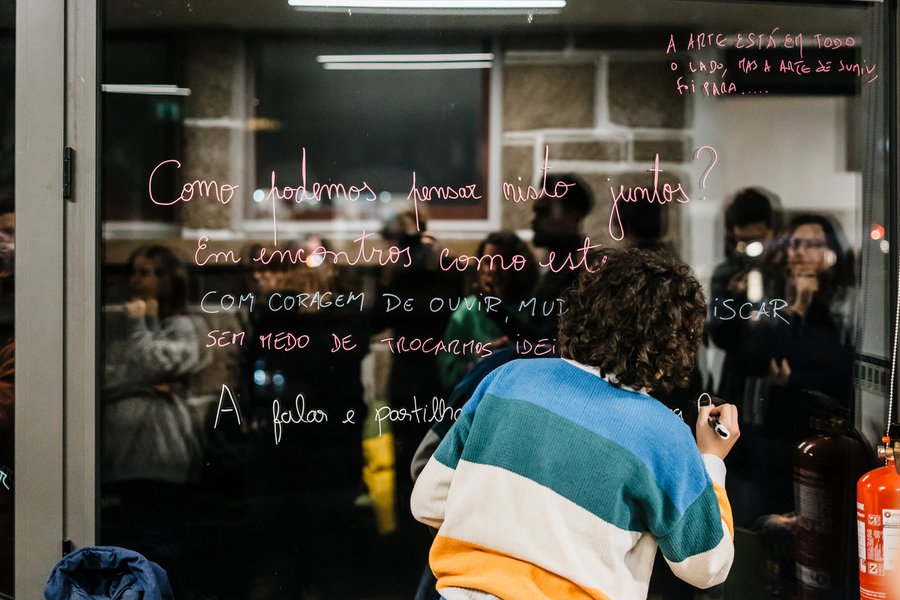 A ARTE ESTÁ EM TODO
O LADO, MAS A ARTE DE SUMIU,
FOI PARA.....
Como podemos pensar nisto juntos?
Em encontros como este
COM CORAGEM DE OUVIR, ISCAR
SEM MEDO DE TROCARMOS IDEI
A falar e partilha